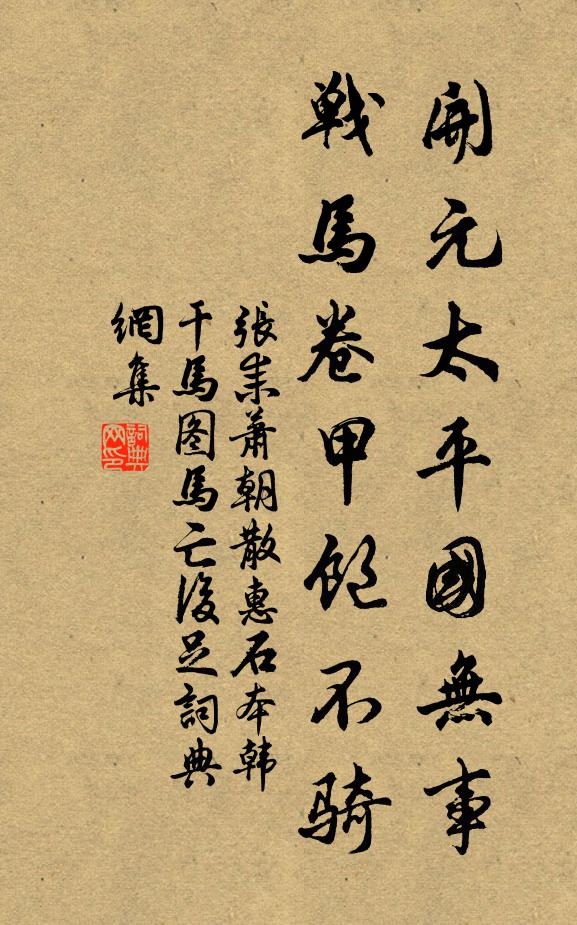 開元太平國無事
戦馬卷甲飽不騎
張耒蕭朝散惠石本韩
干馬图馬亡後足詞典
網集
詞典
网印